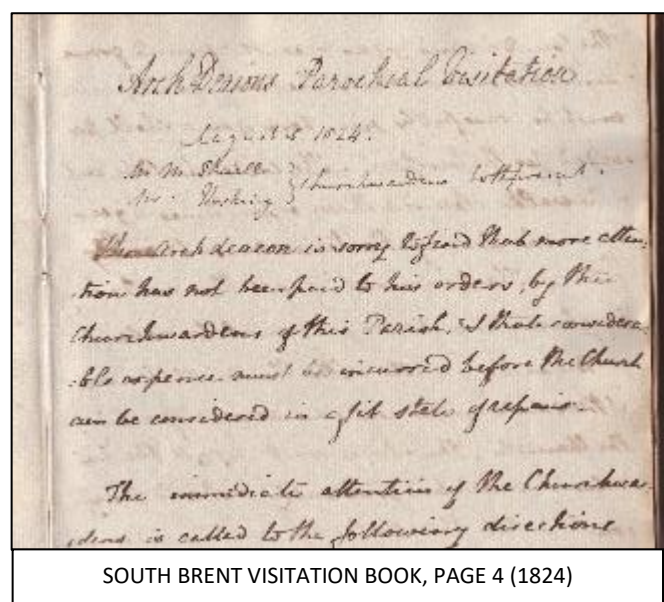 Arch Deacons Parochial Visitation
August 1824.
Mr M
Mr. } Churchwardens both present.
The Archdeacon is sorry to find that more atten-
tion has not been paid to his orders, by the
Churchwardens of this Parish, & that considera-
-ble expence must be incurred before the Church
can be considered in a fit state of repair.
The immediate attention of the Churchwar-
-dens is called to the following directions
SOUTH BRENT VISITATION BOOK, PAGE 4 (1824)